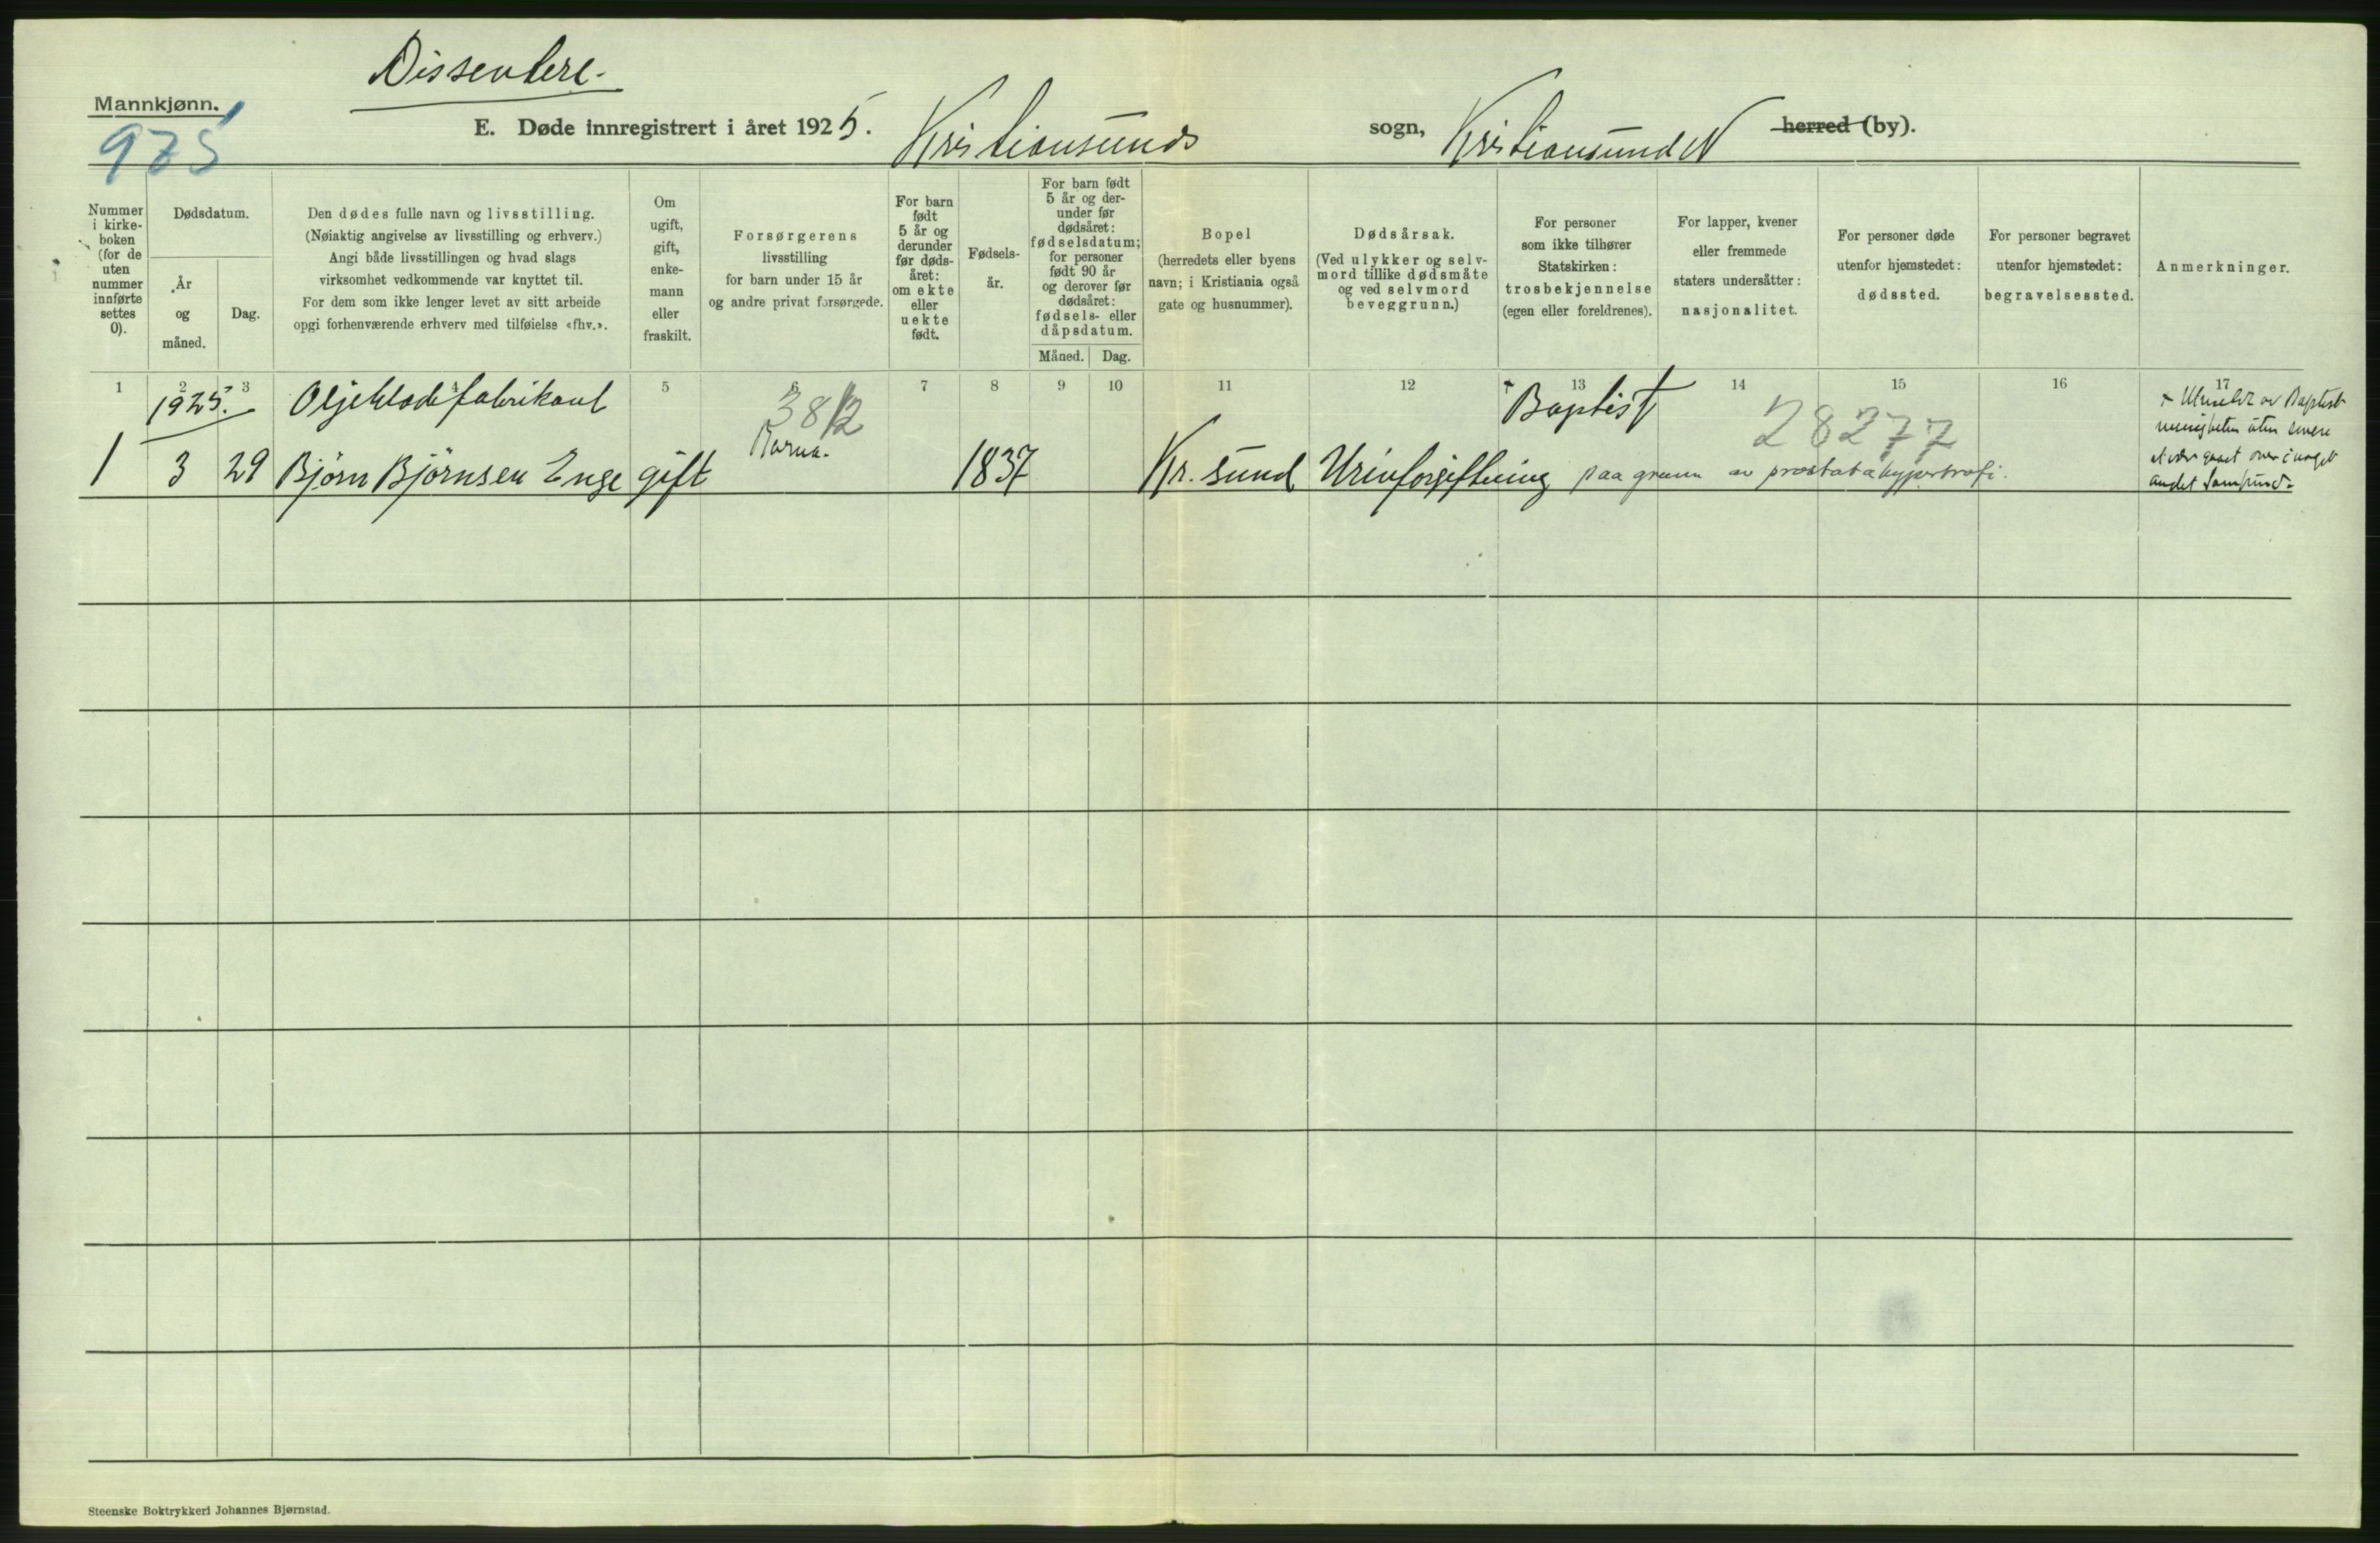 Dissentere.
Mannkjønn.
975
E. Døde innregistrert i året 1925. Kristiansunds sogn, Kristiansund N herred (by).
Nummer i kirke-boken (for de uten nummer innførte settes 0).
Dødsdatum.
År og måned.
Dag.
Den dødes fulle navn og livsstilling.
(Nøiaktig angivelse av livsstilling og erhverv.)
Angi både livsstillingen og hvad slags
virksomhet vedkommende var knyttet til.
For dem som ikke lenger levet av sitt arbeide
opgi forhenværende erhverv med tilføielse «fhv.».
Om ugift, gift, enke-mann eller fraskilt.
Forsørgerens
livsstilling
for barn under 15 år
og andre privat forsørgede.
For barn født 5 år og derunder før døds-året: om ekte eller uekte født.
Fødsels-år.
For barn født 5 år og der-under før dødsåret: fødselsdatum; for personer født 90 år og derover før dødsåret: fødsels- eller dåpsdatum.
Måned. Dag.
Bopel
(herredets eller byens
navn; i Kristiania også
gate og husnummer).
Dødsårsak.
(Ved ulykker og selv-
mord tillike dødsmåte
og ved selvmord
beveggrunn.)
For personer
som ikke tilhører
Statskirken:
trosbekjennelse
(egen eller foreldrenes).
For lapper, kvener
eller fremmede
staters undersåtter:
nasjonalitet.
For personer døde
utenfor hjemstedet:
dødssted.
For personer begravet
utenfor hjemstedet:
begravelsessted.
Anmerkninger.
1 2 3 4 5 6 7 8 9 10 11 12 13 14 15 16 17
1925. Oljeklædefabrikant 3812 + Baptist 28277
1 3 29 Bjørn Bjørnsen Enge gift 1837 Kr. sund Urinforgiftning paa grunn av prostatahypertrofi.
+ Utmeldt av Baptist
menigheten uten senere
at være gaaet over i noget
andet samfund.
Steenske Boktrykkeri Johannes Bjørnstad.